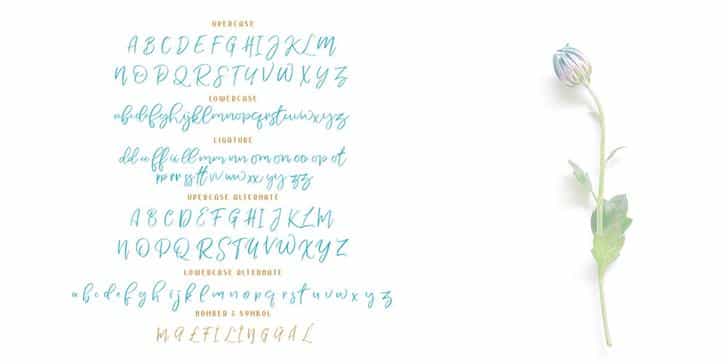 UPPERCASE
A B C D E F G H I J K L M
N O P Q R S T U V W X Y Z
LOWERCASE
abcdefghijklmnopqrstuvwxyz
LIGATURE
dd ff ll mm nn om on oo op ot
pp rr ss tt ww xx yy zz
UPPERCASE ALTERNATE
A B C D E F G H I J K L M
N O P Q R S T U V W X Y Z
LOWERCASE ALTERNATE
a b c d e f g h i j k l m n o p q r s t u v w x y z
NUMBER & SYMBOL